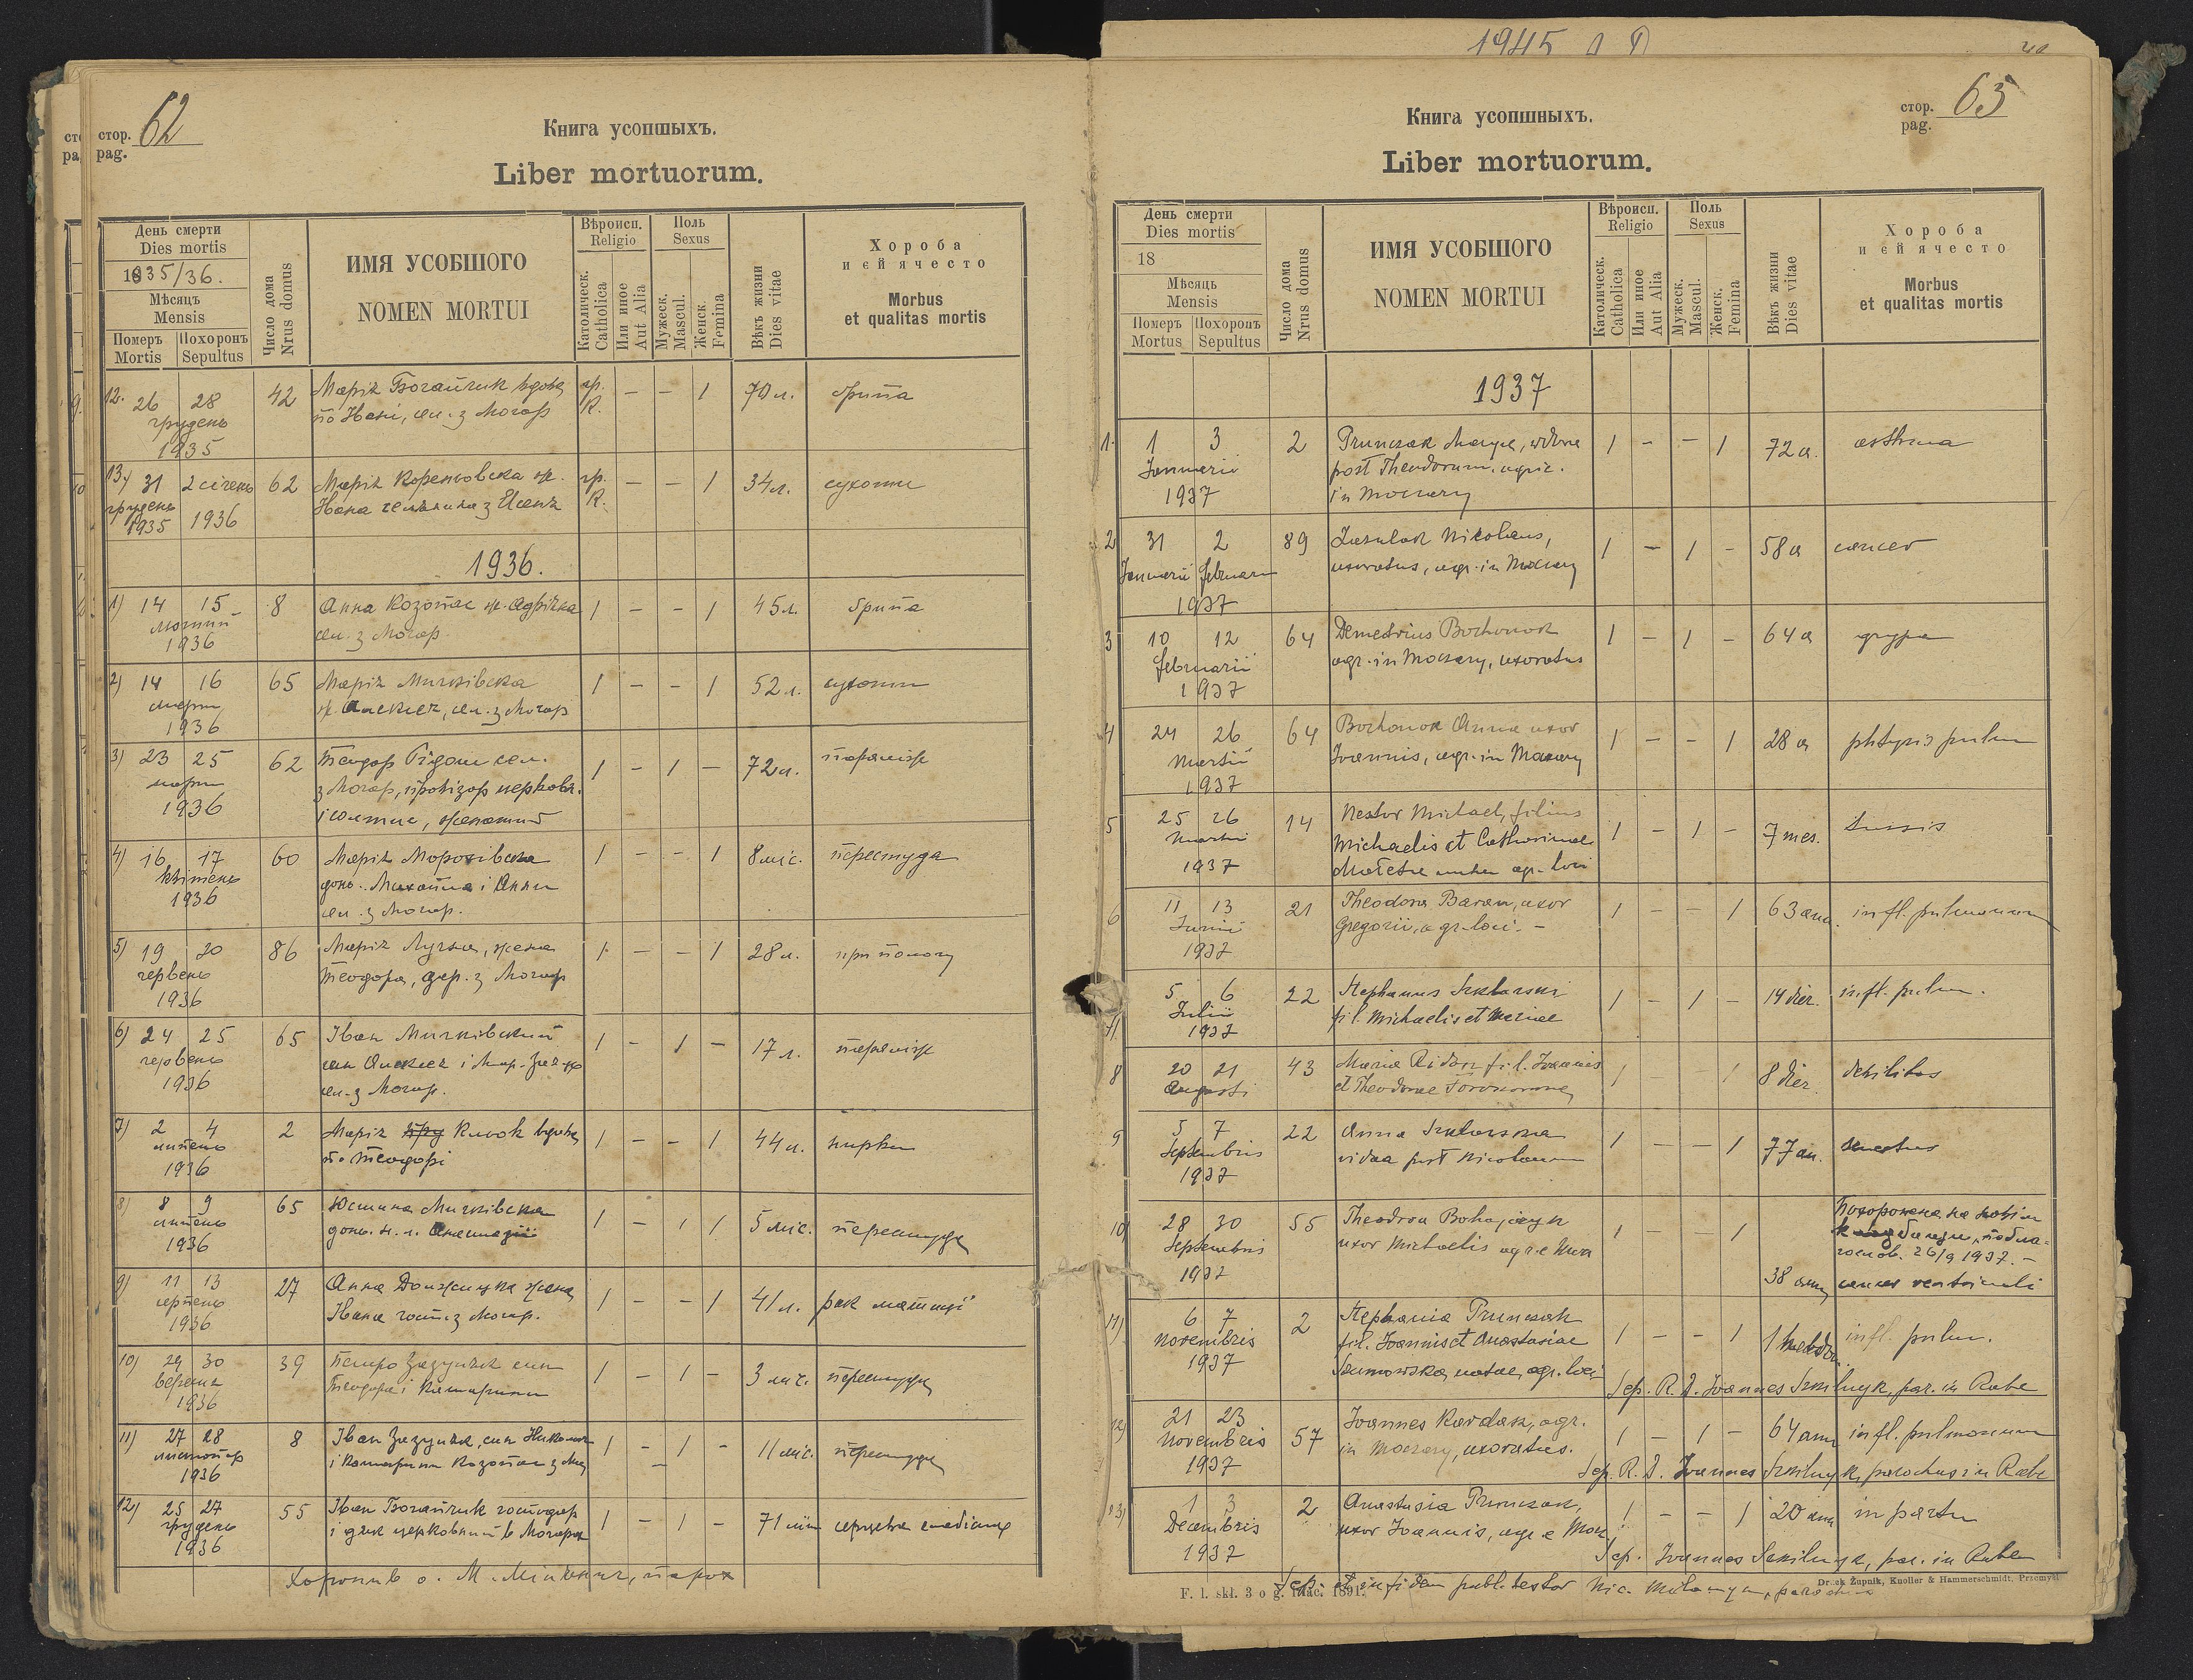 1945
стор. 62
pag.
Книга усопшыхъ.
Liber mortuorum.
День смерти
Dies mortis
1835/36.
Мѣсяцъ
Mensis
Померъ Похоронъ
Mortis Sepultus
Число дома
Nrus domus
ИМЯ УСОБШОГО
NOMEN MORTUI
Вѣроисп.
Religio
Католическ.
Catholica
Или иное
Aut Alia
Поль
Sexus
Мужеск.
Mascul.
Женск.
Femina
Вѣкъ жизни
Dies vitae
Хороба
и єй ячесто
Morbus
et qualitas mortis
12. 26 28 42 Марія Богайчик вдова гр. — — 1 70 л. ґрипа
грудень по Івані, сел. з Мочар К.
1935
13) 31 2 січень 62 Марія Кореньовска ж. гр. — — 1 34 л. сухоти
грудень 1936 Івана К.
1935
1936.
1) 14 15 8 Анна Козопас ж. 1 — — 1 45 л. ґрипа
лютий сел. з Мочар.
1936
2) 14 16 65 Марія Мичківска 1 — — 1 52 л. сухоти
март ж. Алексея, сел. з Мочар
1936
3) 23 25 62 Теодор Рідош сел. 1 — 1 — 72 л.
март з Мочар, провізор церковн.
1936 і жонатий
4) 16 17 60 Марія 1 — — 1 8 міс. перестуда
квітень донь. Михайла і Анни
1936 сел. з Мочар.
5) 19 20 86 Марія Лучка, жена 1 — — 1 28 л. при пологу
червень Теодора, з Мочар
1936
6) 24 25 65 Іван Мичківский 1 — 1 — 17 л.
червень син Алексея і Мар.
1936 сел. з Мочар.
7) 2 4 2 Марія Клюк вдова 1 — — 1 44 л. нирки
липень по Теодорі
1936
8) 8 9 65 Юстина Мичківска 1 — 1 1 5 міс. перестуда
липень донь. н. л. Анастазії
1936
9) 11 13 27 Анна Должицка жена 1 — — 1 41 л. рак матиці
серпень Івана госп. з Мочар.
1936
10) 29 30 39 Петро Зазуляк син 1 — 1 — 3 міс. перестуда
верешн Теодора і Катарини
1936
11) 27 28 8 Іван Зазуляк, син Николая 1 — 1 — 11 міс. перестуда
листопад і Катарини Козопас з Моч
1936
12) 25 27 55 Іван Богайчик господар 1 — 1 — 71 літ серцева
грудень і дяк церковний в Мочарах
1936
Хоронив о. М. парох
стор. 63
pag.
Книга усопшныхъ.
Liber mortuorum.
День смерти
Dies mortis
18
Мѣсяць
Mensis
Померъ Похоронъ
Mortus Sepultus
Число дома
Nrus domus
ИМЯ УСОБШОГО
NOMEN MORTUI
Вѣроисп.
Religio
Католическ.
Catholica
Или иное
Aut Alia
Поль
Sexus
Мужеск.
Mascul.
Женск.
Femina
Вѣкъ жизни
Dies vitae
Хороба
и єй ячесто
Morbus
et qualitas mortis
1937
1. 1 3 2 Prunczak Marya, vidova 1 - - 1 72 a. asthma
Januarii post Theodorum. agric.
1937 in Moczary
2 31 2 89 Zazulak Nikolaus, 1 — 1 - 58 a cancer
Januarii Februarii uxoratus, agr. in Moczary
1937
3 10 12 64 Demetrius Bochonok 1 - 1 - 64 a grypa
Februarii agr. in Moczary, uxoratus
1937
4 24 26 64 Bochonok Anna uxor 1 - - 1 28 a phtysis pulm
Martii Joannis, agr. in Moczary
1937
5 25 26 14 Nestor Michael, filius 1 - 1 - 7 mes. tussis
Martii Michaelis et Catharinae
1937 agr. loci
6 11 13 21 Theodora Baran, uxor 1 - - 1 63 ann. infl. pulmonum
Junii Gregorii, agr. loci. -
1937
5 6 22 Stephanus Szklarski 1 - 1 - 14 dier. infl. pulm.
Julii fil. Michaelis et Mariae
1937
8 20 21 43 Maria Ridosz fil. Joannis 1 - - 1 8 dier debilitas
Augusti et Theodorae
9 5 7 22 Anna Szklarska 1 — — 1 77 an. senectus
Septembris vidua post Nicolaum
1937
10 28 30 55 Theodora Bohajczyk 1 — 1 Похоронена на новім
Septembris uxor Michaelis agr. e Mocz кладбищи, поблагослов. 26/9 1937. —
1937 38 ann cancer ventriculi
11) 6 7 2 Stephania Prunczak 1 - - 1 1 hebdom. infl. pulm.
Novembris fil. Joannis et Anastasiae
1937 Szumowska, natae, agr. loci
Sep. R. D. Joannes Szkilnyk, par. in Rabe
12) 21 23 57 Joannes Kardasz, agr. 1 - 1 - 64 ann infl. pulmonum
Novembris in Moczary, uxoratus.
1937 Sep. R. D. Joannes Szkilnyk, parochus in Rabe
13) 1 3 2 Anastasia Prunczak, 1 - - 1 20 ann in partu
Decembris uxor Joannis, agr. e Mocz.
1937 Sep. Joannes Szkilnyk, par. in Rabe
Sep. et in fidem publ. testor Nic. parochus
F. I. skł. 3 o g. mac. 1891.
Druck Żupnik, Knoller & Hammerschmidt, Przemyśl.